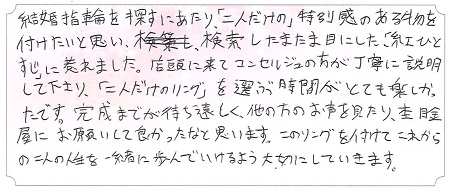 結婚指輪を探すにあたり、「二人だけの」特別感のある物を
付けたいと思い、検索したまたま目にした、「紅ひと
すじ」に惹れました。店頭に来てコンセルジュの方が丁寧に説明
して下さり、「二人だけのリング」を選ぶ時間がとても楽しか
たです。完成までが待ち遠しく、他の方のお声を見たり、杢目金
屋にお願いして良かったなと思います。このリングを付けてこれから
の二人の人生を一緒に歩んでいけるよう大切にしていきます。